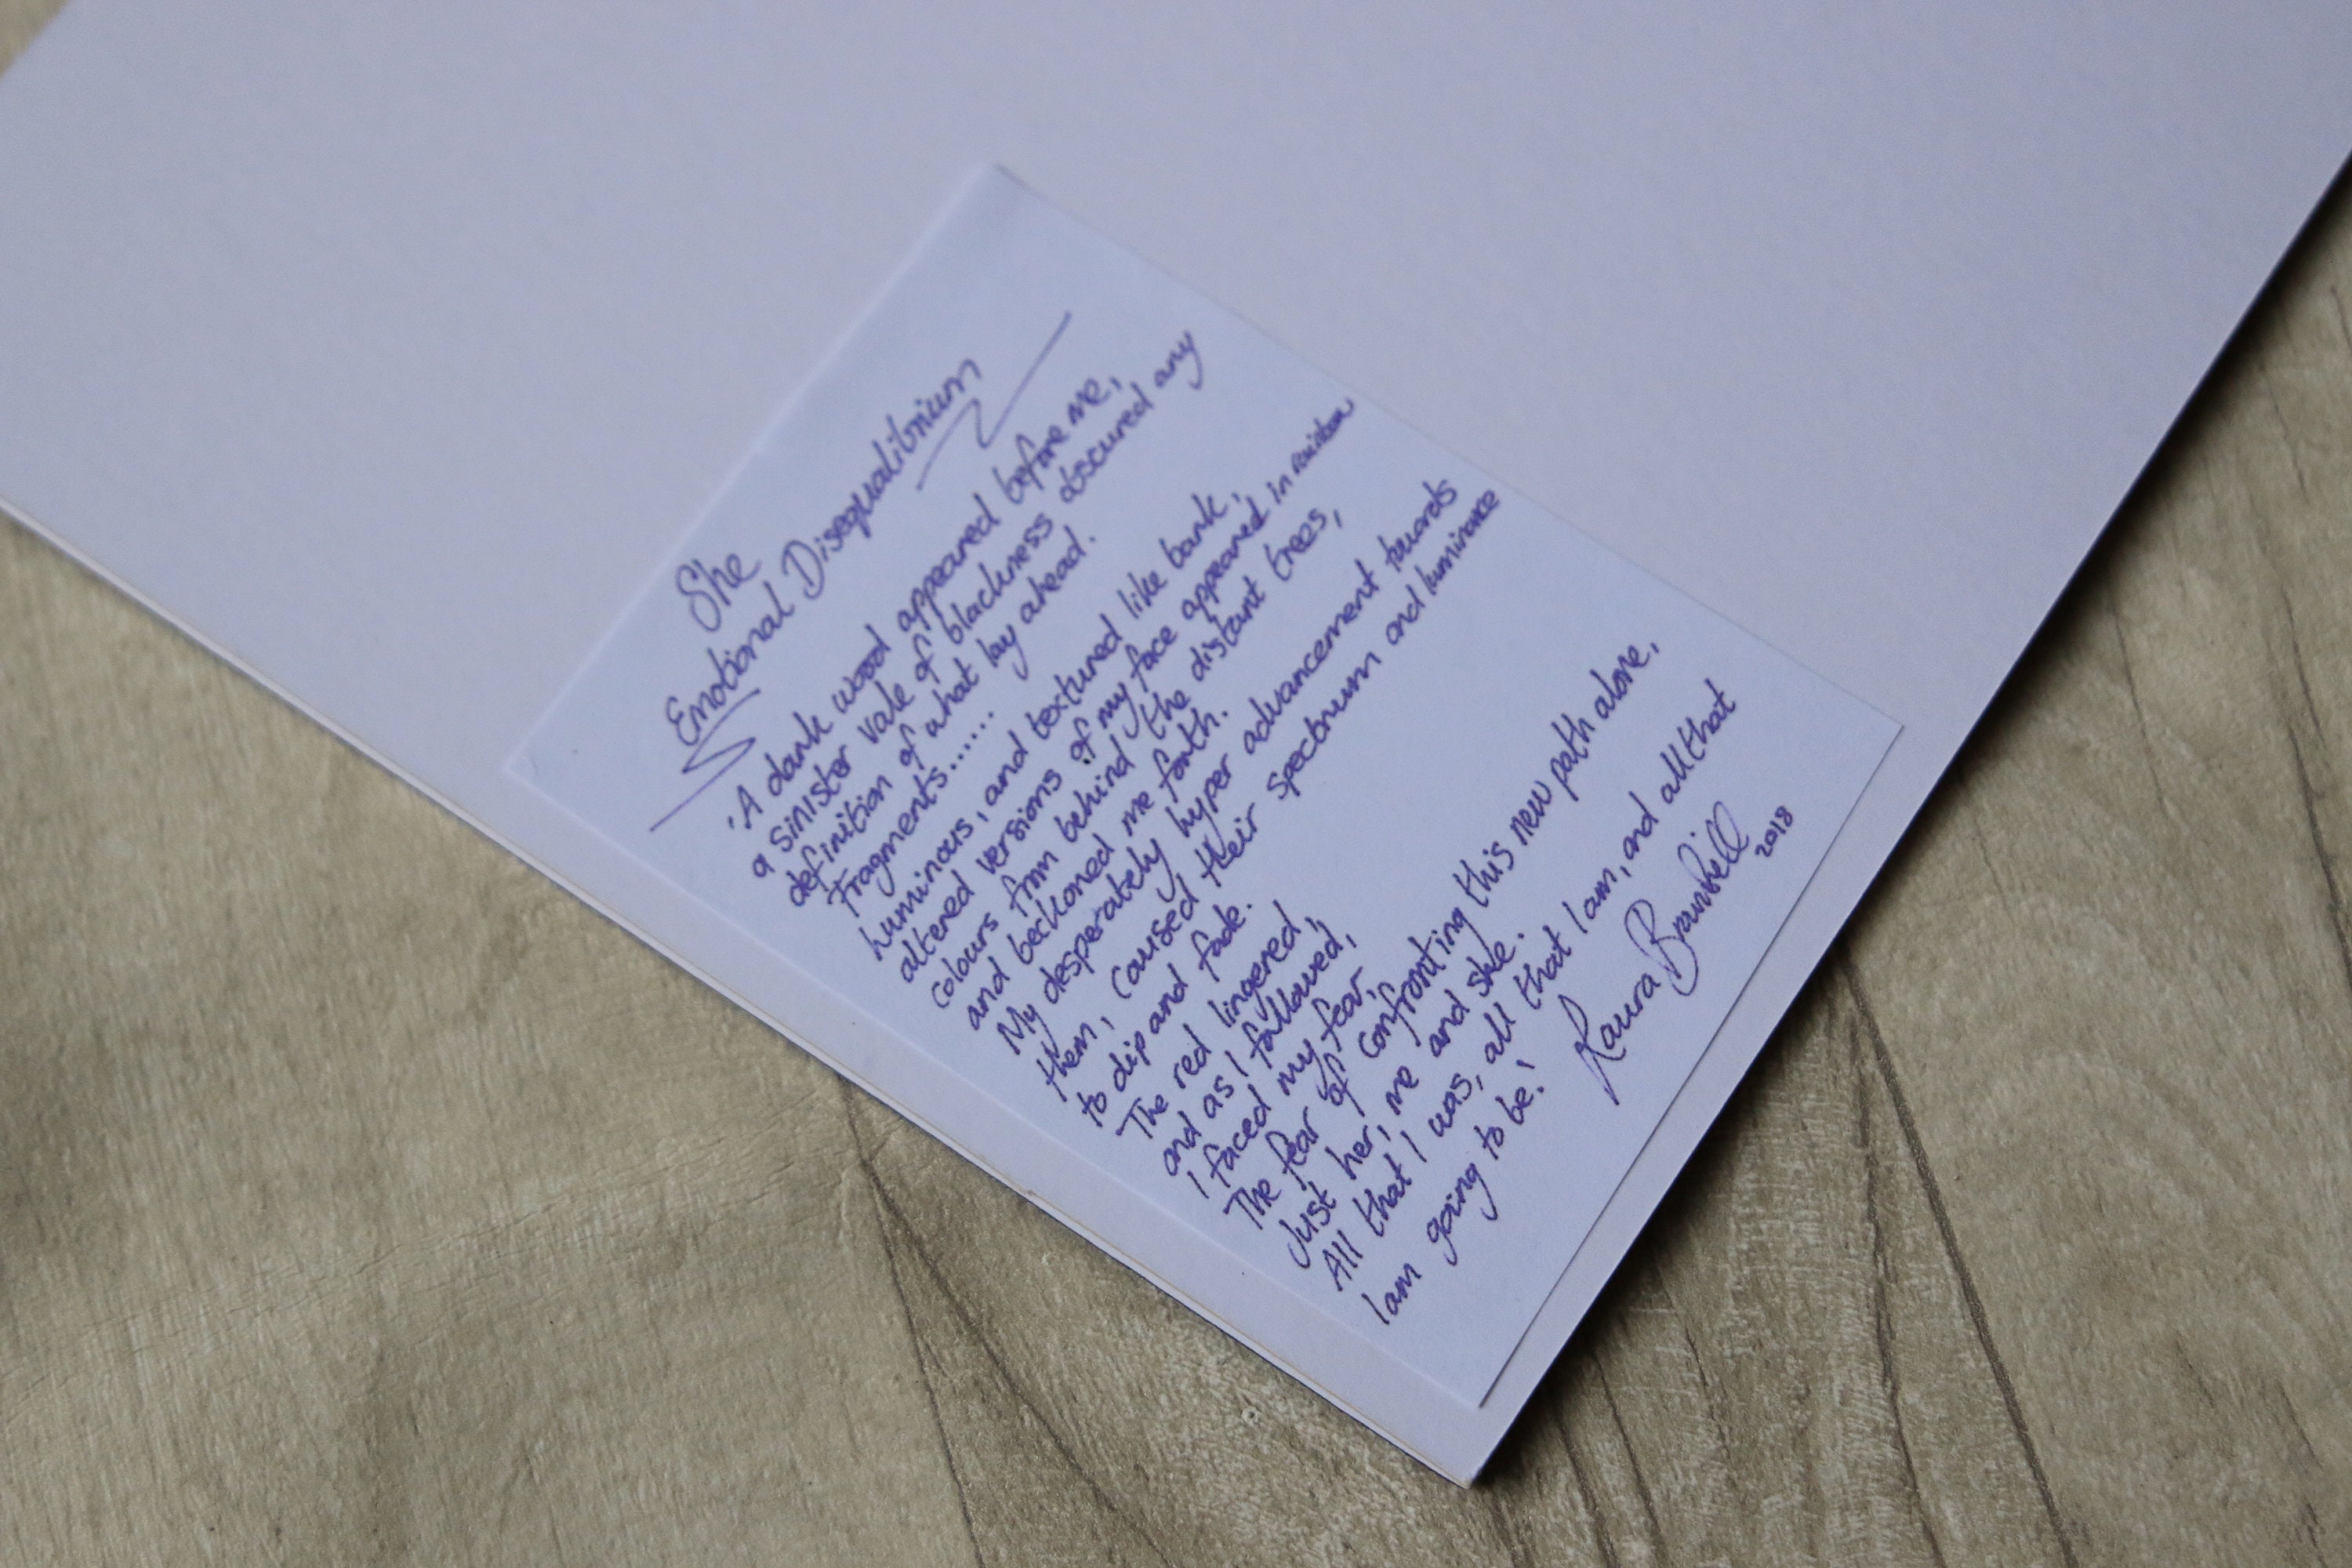 She
Emotional Disequalibrium
'A dark wood appeared before me,
a sinister vale of blackness obscured any
definition of what lay ahead.
Fragments......
luminous, and textured like bark,
altered versions of my face appeared in rainbow
colours from behind the distant trees,
and beckoned me forth.
My desperately hyper advancement towards
them, caused their spectrum and luminance
to dip and fade.
The red lingered,
and as I followed,
I faced my fear,
The fear of confronting this new path alone,
Just her, me and she.
All that I was, all that I am, and all that
I am going to be!
Laura 2018